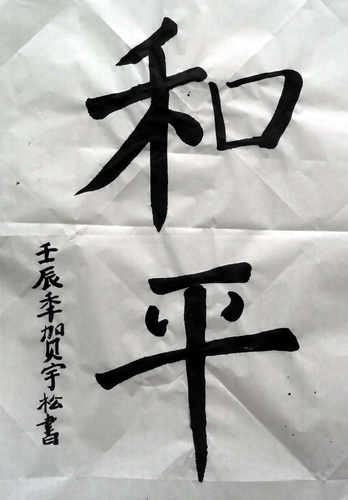 和平
壬辰季贺宇松書